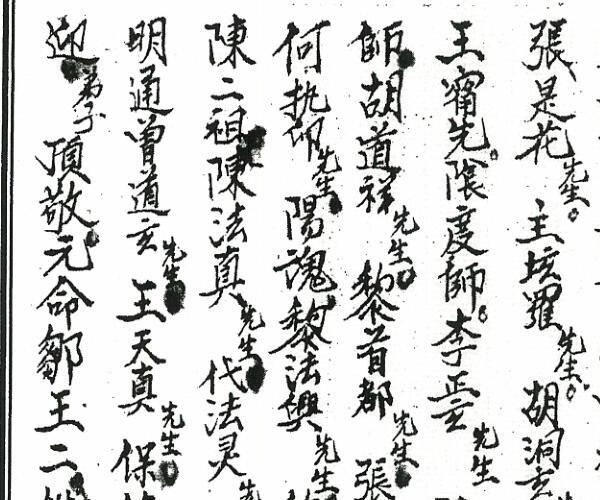 張是花先生。主垓羅先生。胡洞玄
王甯先。陰度師。李正玄先生
師胡道祥先生。黎首都先生張
何执仰先生陽魂黎法興先生
陳二祖陳法真先生代法灵先
明通曾道玄先生王天真先生保
迎弟子頂敬元命鄒王二